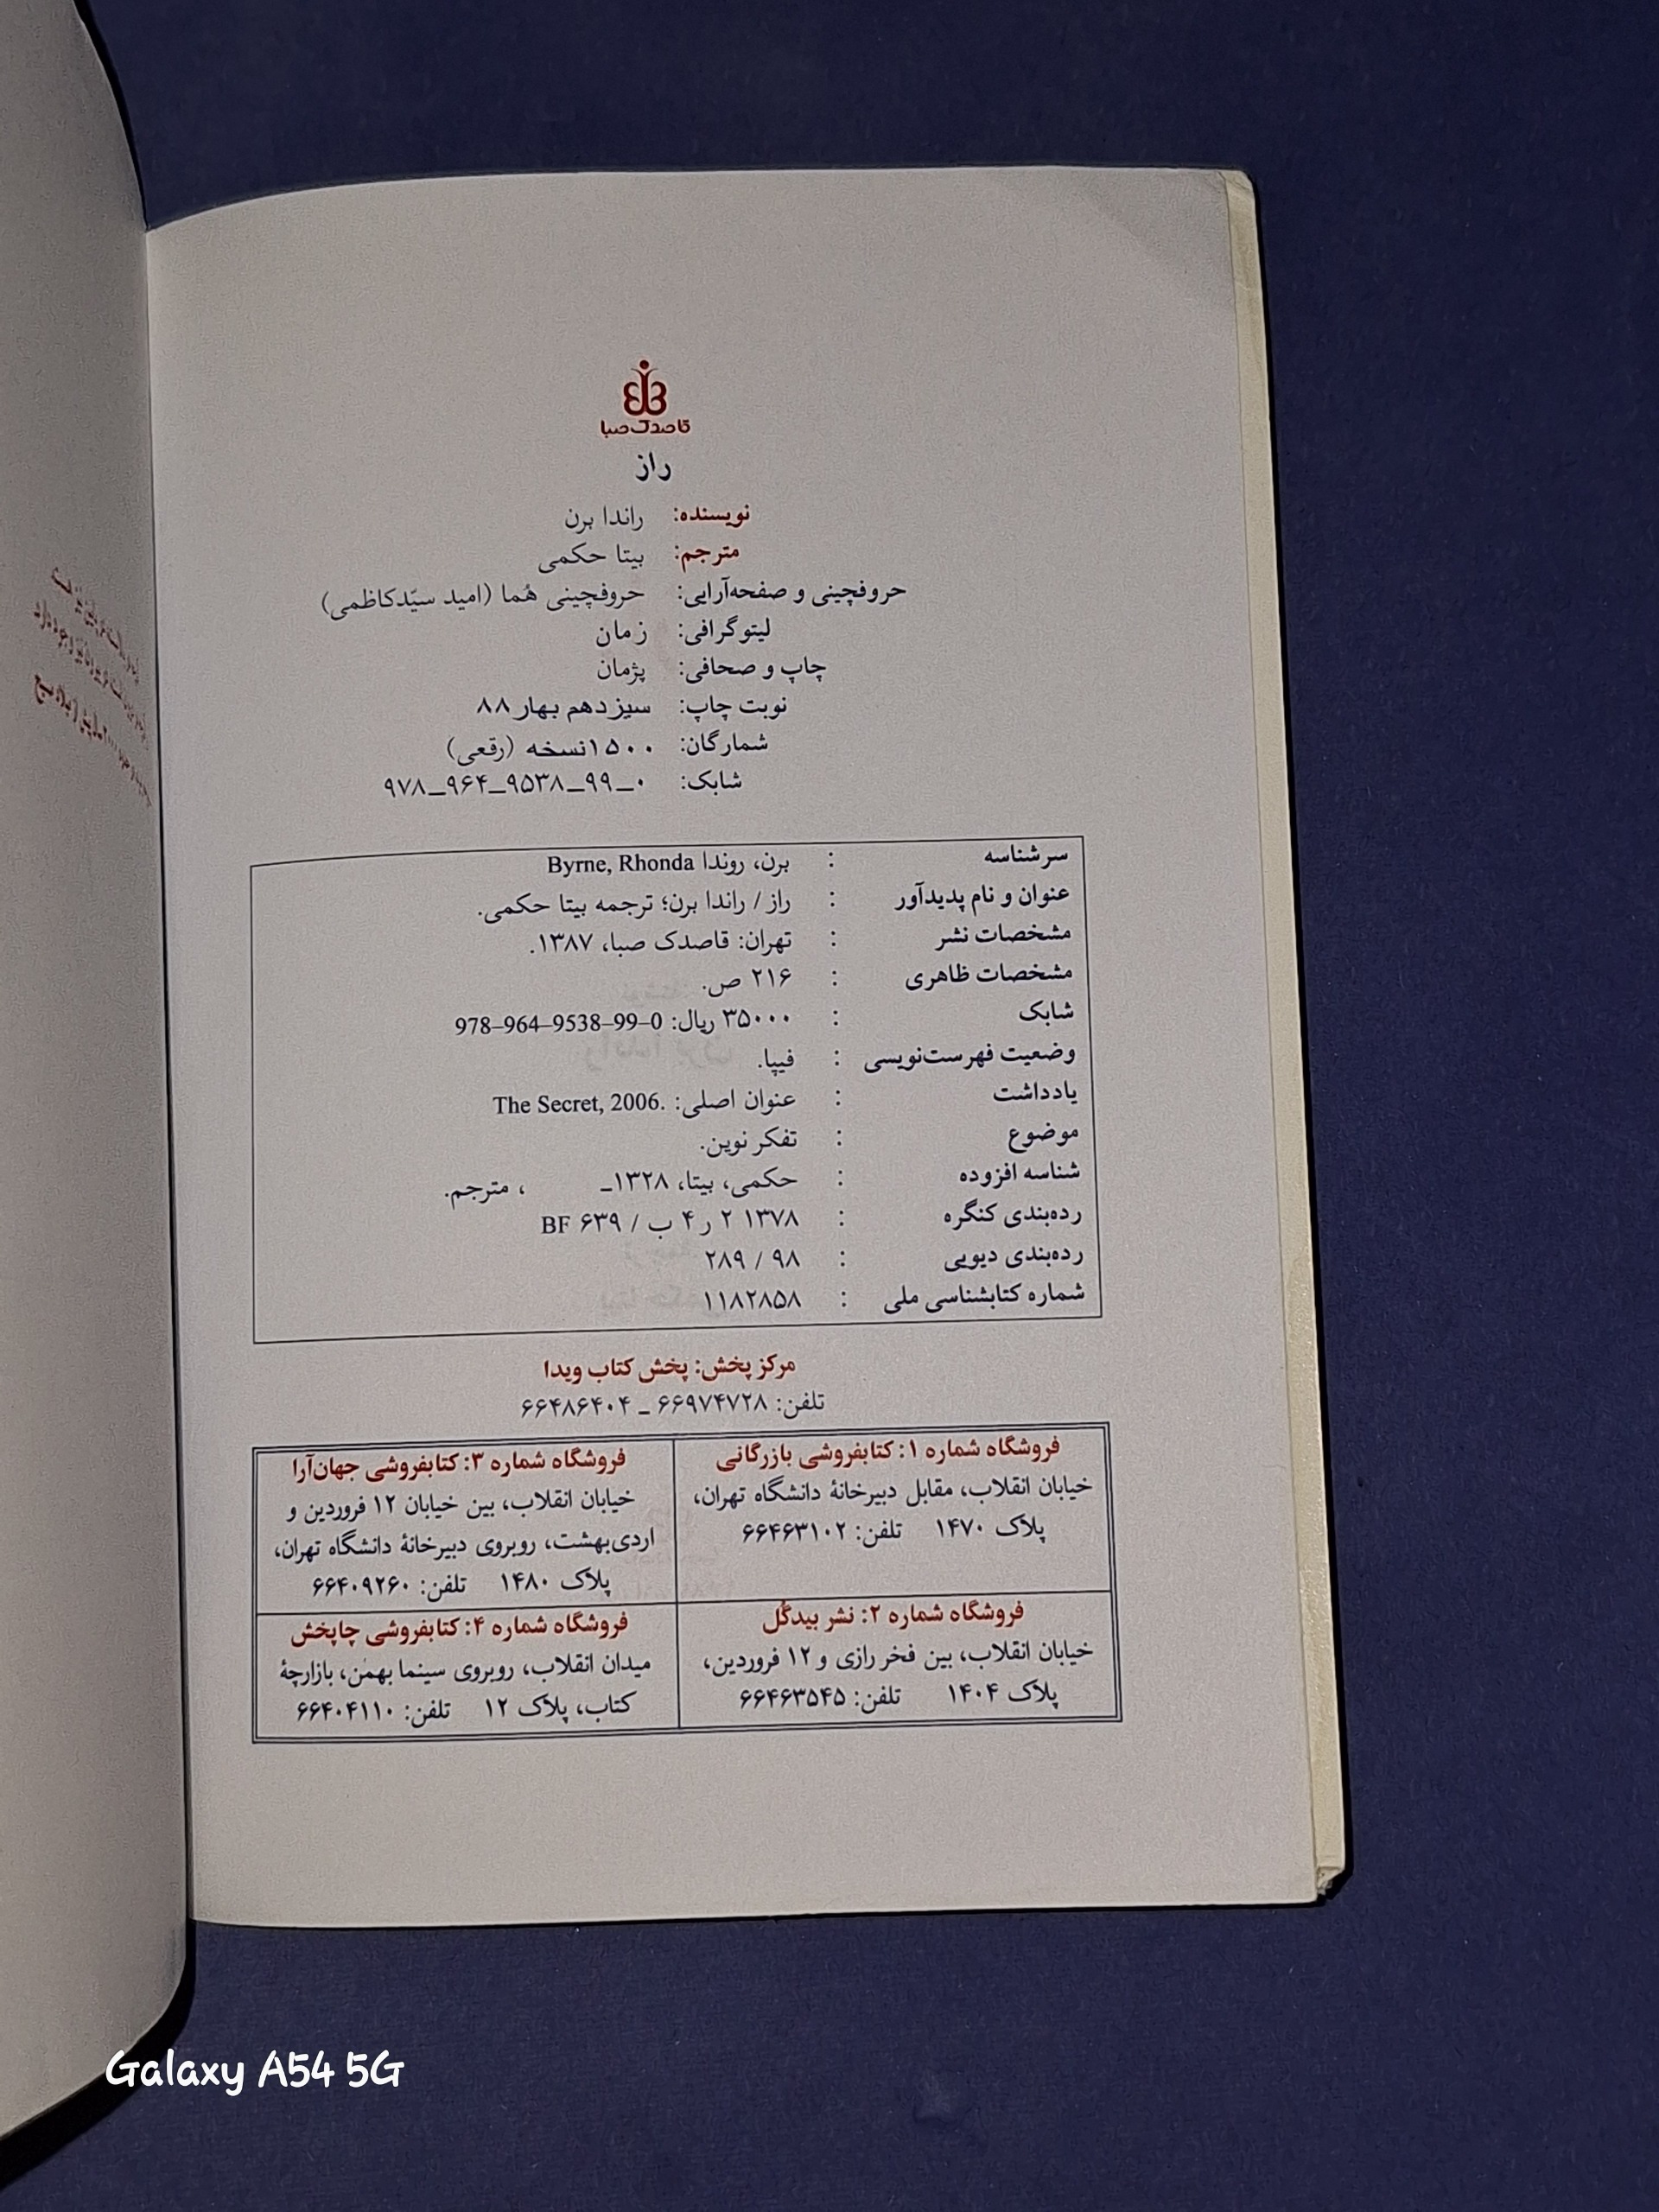 قاصدک صبا
راز
نویسنده: راندا برن
مترجم: بیتا حکمی
حروفچینی و صفحه‌آرایی: حروفچینی هُما (امید سیّدکاظمی)
لیتوگرافی: زمان
چاپ و صحافی: پژمان
نوبت چاپ: سیزدهم بهار ۸۸
شمارگان: ۱۵۰۰نسخه (رقعی)
شابک: ۹۷۸_۹۶۴_۹۵۳۸_۹۹_۰
سرشناسه : برن، روندا Byrne, Rhonda
عنوان و نام پدیدآور : راز / راندا برن؛ ترجمه بیتا حکمی.
مشخصات نشر : تهران: قاصدک صبا، ۱۳۸۷.
مشخصات ظاهری : ۲۱۶ ص.
شابک : ۳۵۰۰۰ ریال: 978–964–9538–99–0
وضعیت فهرست‌نویسی : فیپا.
یادداشت : عنوان اصلی: The Secret, 2006.
موضوع : تفکر نوین.
شناسه افزوده : حکمی، بیتا، ۱۳۲۸ـ ، مترجم.
رده‌بندی کنگره : ۱۳۷۸ ۲ ر ۴ ب / ۶۳۹ BF
رده‌بندی دیویی : ۹۸ / ۲۸۹
شماره کتابشناسی ملی : ۱۱۸۲۸۵۸
مرکز پخش: پخش کتاب ویدا
تلفن: ۶۶۹۷۴۷۲۸ _ ۶۶۴۸۶۴۰۴
فروشگاه شماره ۱: کتابفروشی بازرگانی
خیابان انقلاب، مقابل دبیرخانهٔ دانشگاه تهران،
پلاک ۱۴۷۰ تلفن: ۶۶۴۶۳۱۰۲
فروشگاه شماره ۳: کتابفروشی جهان‌آرا
خیابان انقلاب، بین خیابان ۱۲ فروردین و
اردی‌بهشت، روبروی دبیرخانهٔ دانشگاه تهران،
پلاک ۱۴۸۰ تلفن: ۶۶۴۰۹۲۶۰
فروشگاه شماره ۲: نشر بیدگُل
خیابان انقلاب، بین فخر رازی و ۱۲ فروردین،
پلاک ۱۴۰۴ تلفن: ۶۶۴۶۳۵۴۵
فروشگاه شماره ۴: کتابفروشی چاپخش
میدان انقلاب، روبروی سینما بهمن، بازارچهٔ
کتاب، پلاک ۱۲ تلفن: ۶۶۴۰۴۱۱۰
Galaxy A54 5G